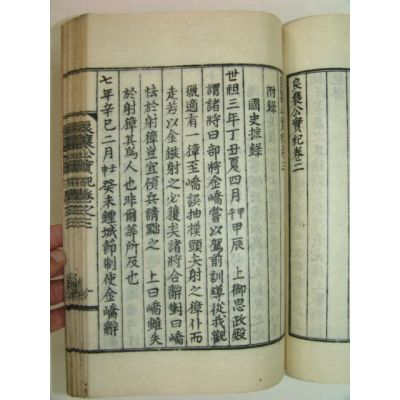 良襄公實記卷二
附錄
國史摭錄
世祖三年丁丑夏四月甲辰 上御思政殿
謂諸將曰部將金嶠嘗爲前訓導從我觀
獵適有一獐至嶠誤抽樸頭矢射之獐仆而
走若以金鏃射之必獲矣諸將合辭對曰嶠
怯於射獐豈宜領兵請黜之 上曰嶠雖失
於射獐其爲人也非爾等所及也
七年辛巳二月癸未鯉城節制使金嶠辭
良襄公實記卷之三